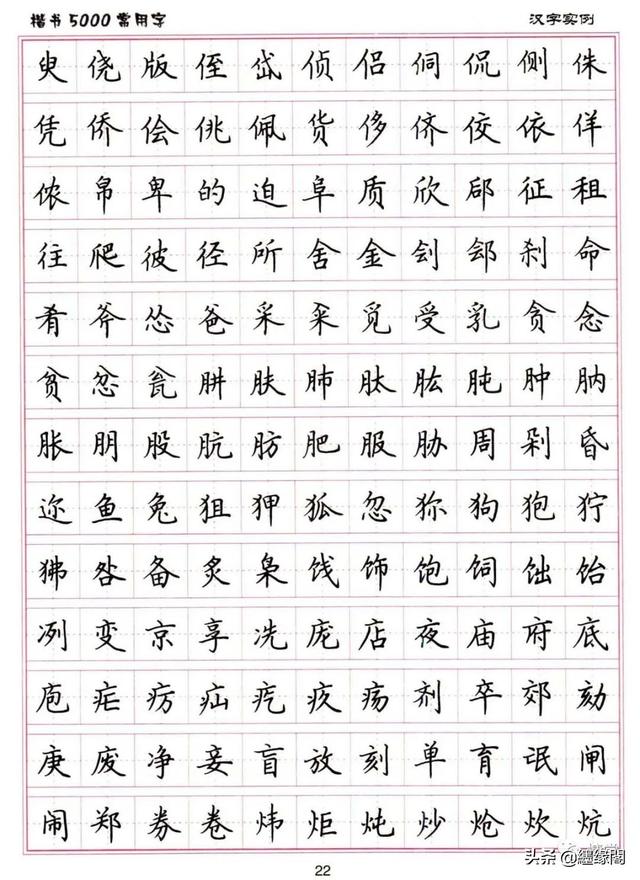 楷书5000常用字 汉字实例
臾侥版侄岱侦侣侗侃侧侏
凭侨侩佻佩货侈侪佼依佯
侬帛卑的迫阜质欣郈征徂
往爬彼径所舍金刽郐刹命
肴斧怂爸采籴觅受乳贪念
贫忿瓮肼肤肺肽肱肫肿肭
胀朋股肮肪肥服胁周剁昏
迩鱼兔狙狎狐忽狝狗狍狞
狒咎备炙枭饯饰饱饲饳饴
冽变京享冼庞店夜庙府底
庖疟疠疝疙疚疡剂卒郊劾
庚废净妾盲放刻单育氓闸
闹郑券卷炜炬炖炒炝炊炕
22
头条 @纒缘閣